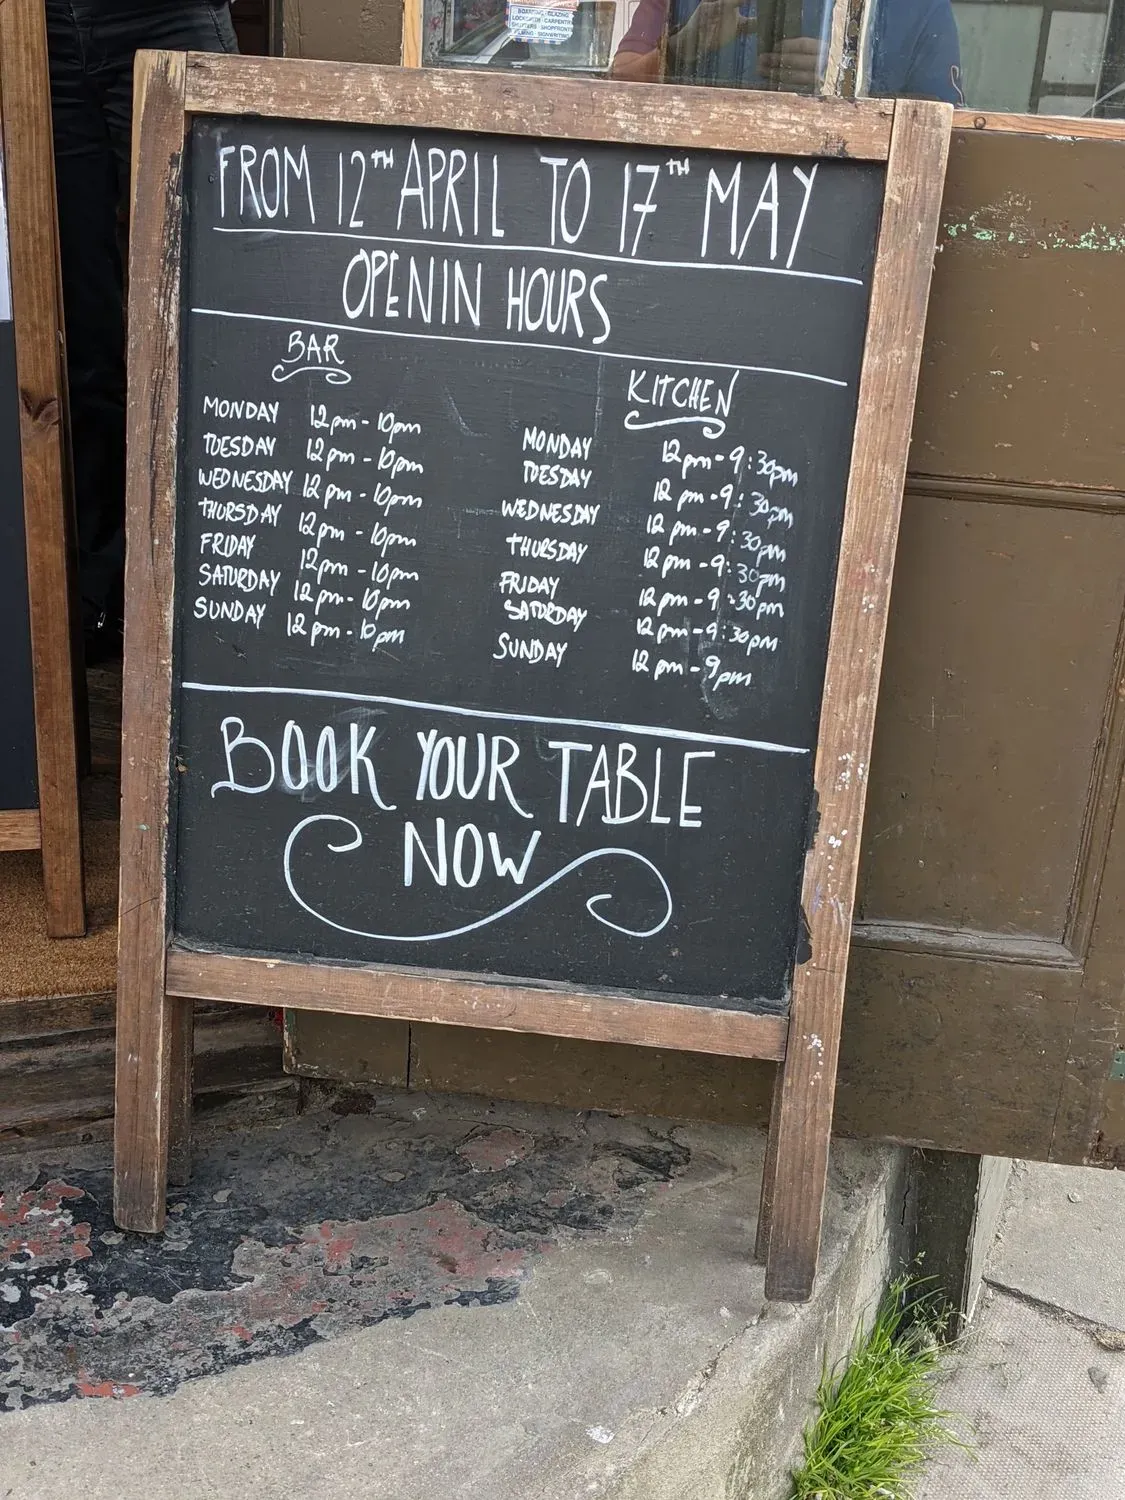 BOARDING · GLAZING
LOCKSMITH · CARPENTRY
SHUTTERS · SHOPFRONTS
SIGNWRITING
FROM 12TH APRIL TO 17TH MAY
OPENIN HOURS
BAR
MONDAY 12pm - 10pm
TUESDAY 12pm - 10pm
WEDNESDAY 12pm - 10pm
THURSDAY 12pm - 10pm
FRIDAY 12pm - 10pm
SATURDAY 12pm - 10pm
SUNDAY 12pm - 10pm
KITCHEN
MONDAY 12pm - 9:30pm
TUESDAY 12pm - 9:30pm
WEDNESDAY 12pm - 9:30pm
THURSDAY 12pm - 9:30pm
FRIDAY 12pm - 9:30pm
SATURDAY 12pm - 9:30pm
SUNDAY 12pm - 9pm
BOOK YOUR TABLE
NOW